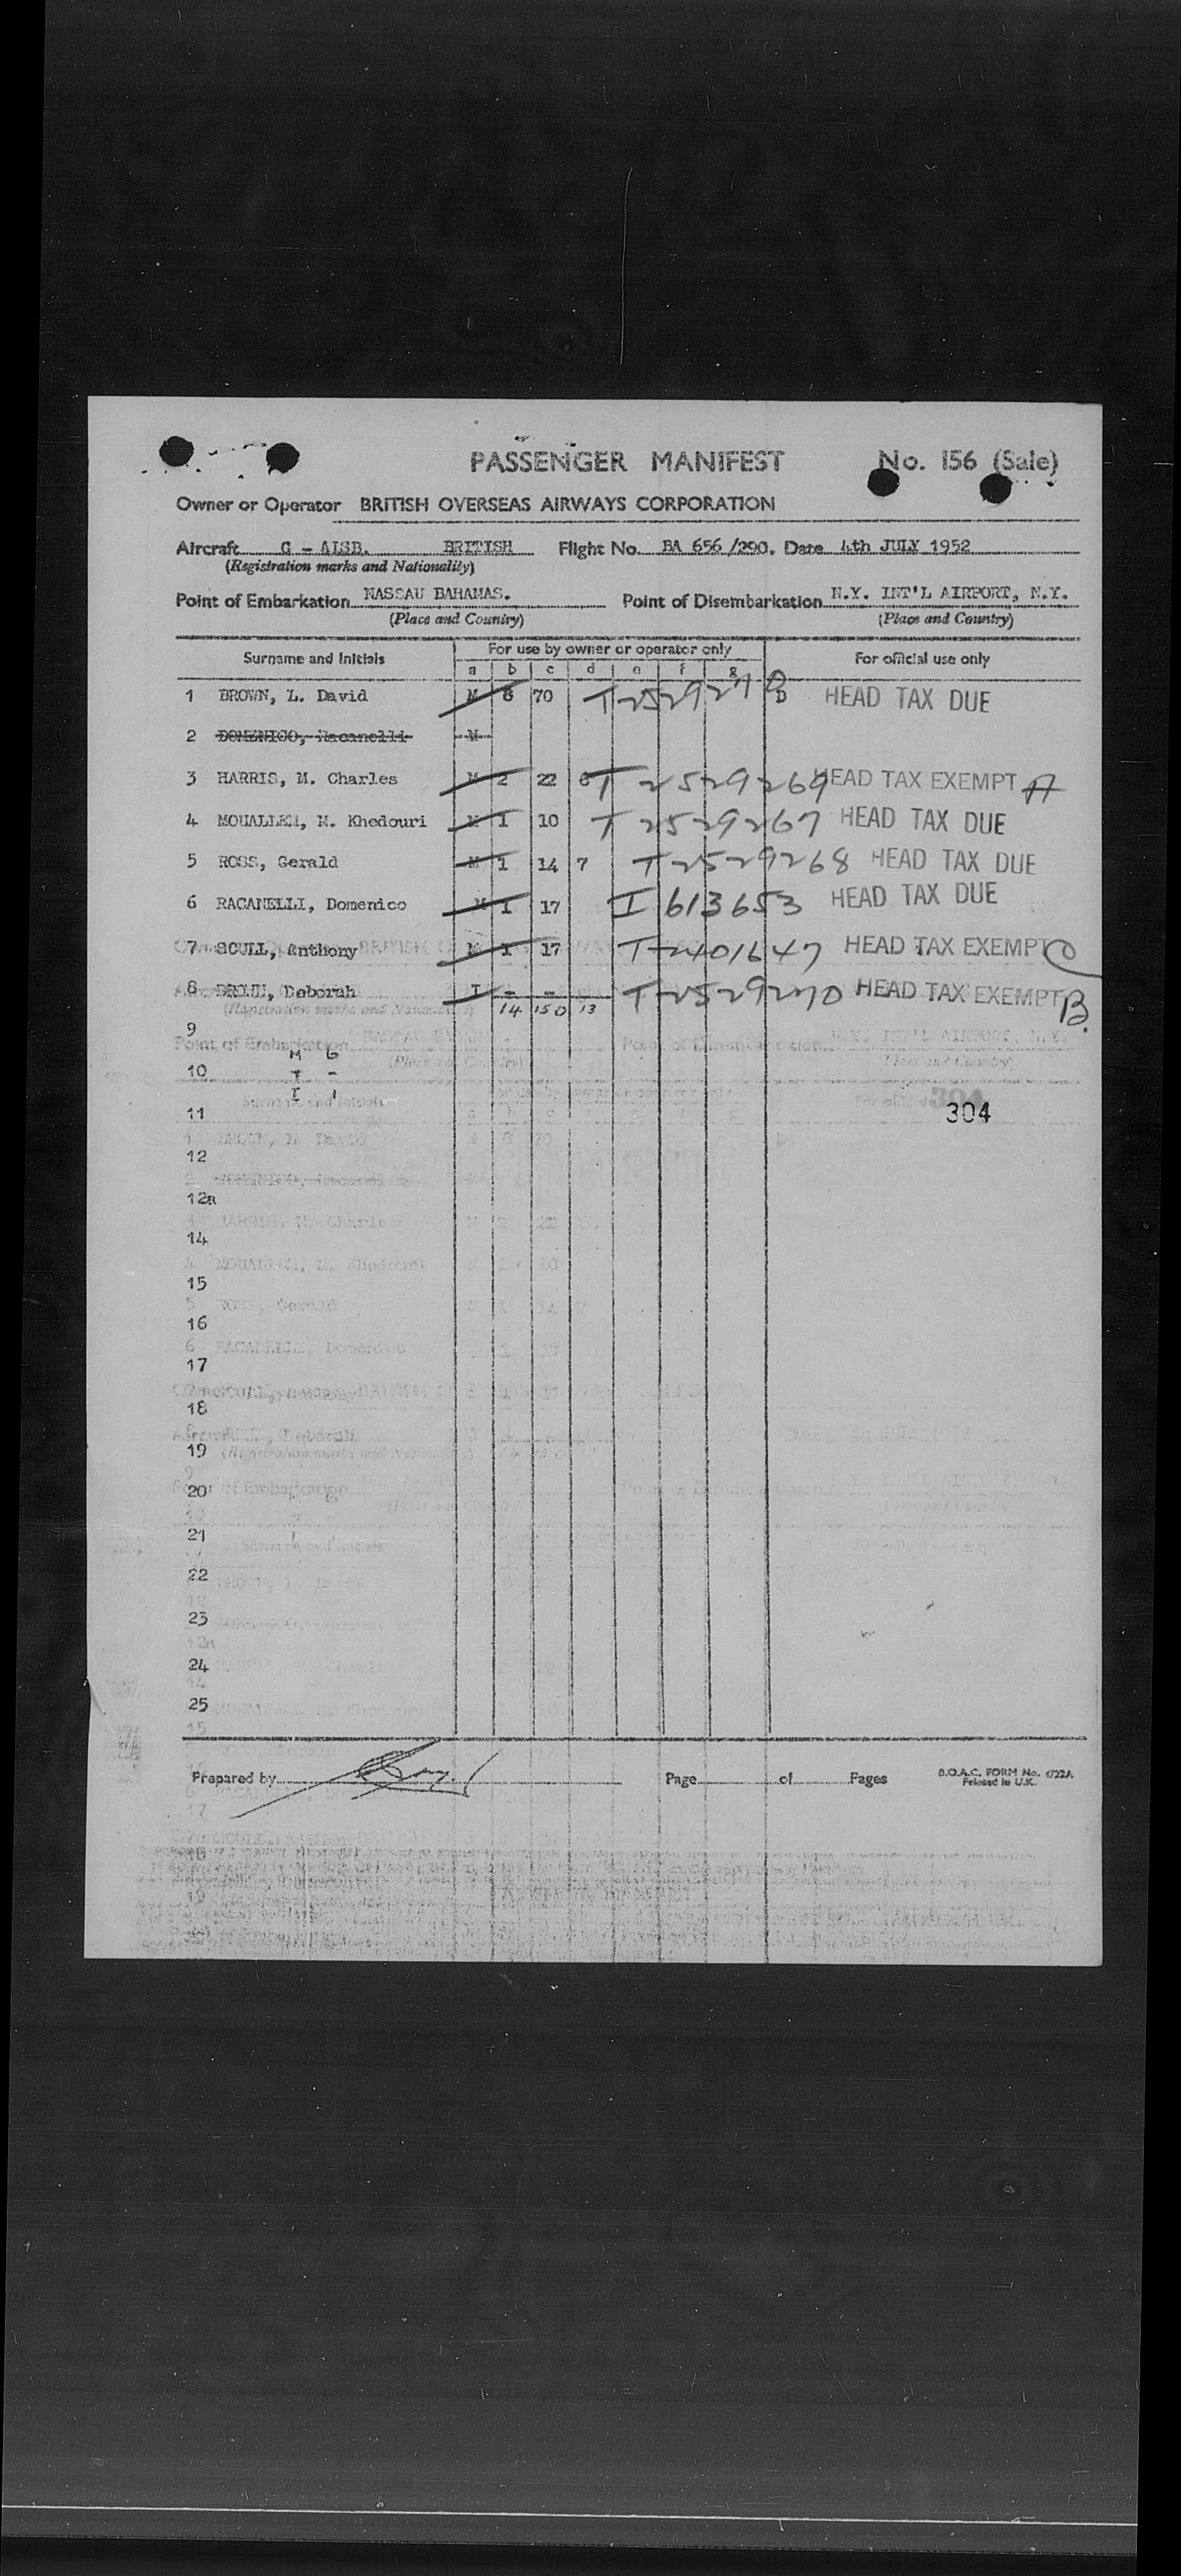 PASSENGER MANIFEST No. 156 (Sale)
Owner or Operator BRITISH OVERSEAS AIRWAYS CORPORATION
Aircraft G - AISB. BRITISH Flight No. BA 656/290. Date 4th JULY 1952
(Registration marks and Nationality)
Point of Embarkation NASSAU BAHAMAS. Point of Disembarkation N.Y. INT'L AIRPORT, N.Y.
(Place and Country) (Place and Country)
Surname and Initials For use by owner or operator only For official use only
a b c d e f g
1 BROWN, L. David M 8 70 T-2529270 HEAD TAX DUE
2 DOMENICO, Racanelli M
3 HARRIS, M. Charles M 2 22 6 T 2529269 HEAD TAX EXEMPT A
4 MOUALLEM, M. Khedouri M 1 10 T 2529267 HEAD TAX DUE
5 ROSS, Gerald M 1 14 7 T 2529268 HEAD TAX DUE
6 RACANELLI, Domenico M 1 17 I 613653 HEAD TAX DUE
7 SCULL, Anthony M 1 17 T-2401647 HEAD TAX EXEMPT C
8 BROWN, Deborah I - - T-2529270 HEAD TAX EXEMPT B.
14 150 13
9
M 6
10 F -
I 1
11 304
12
12a
14
15
16
17
18
19
20
21
22
23
24
25
Prepared by Page of Pages B.O.A.C. FORM No. 1722A
Printed in U.K.